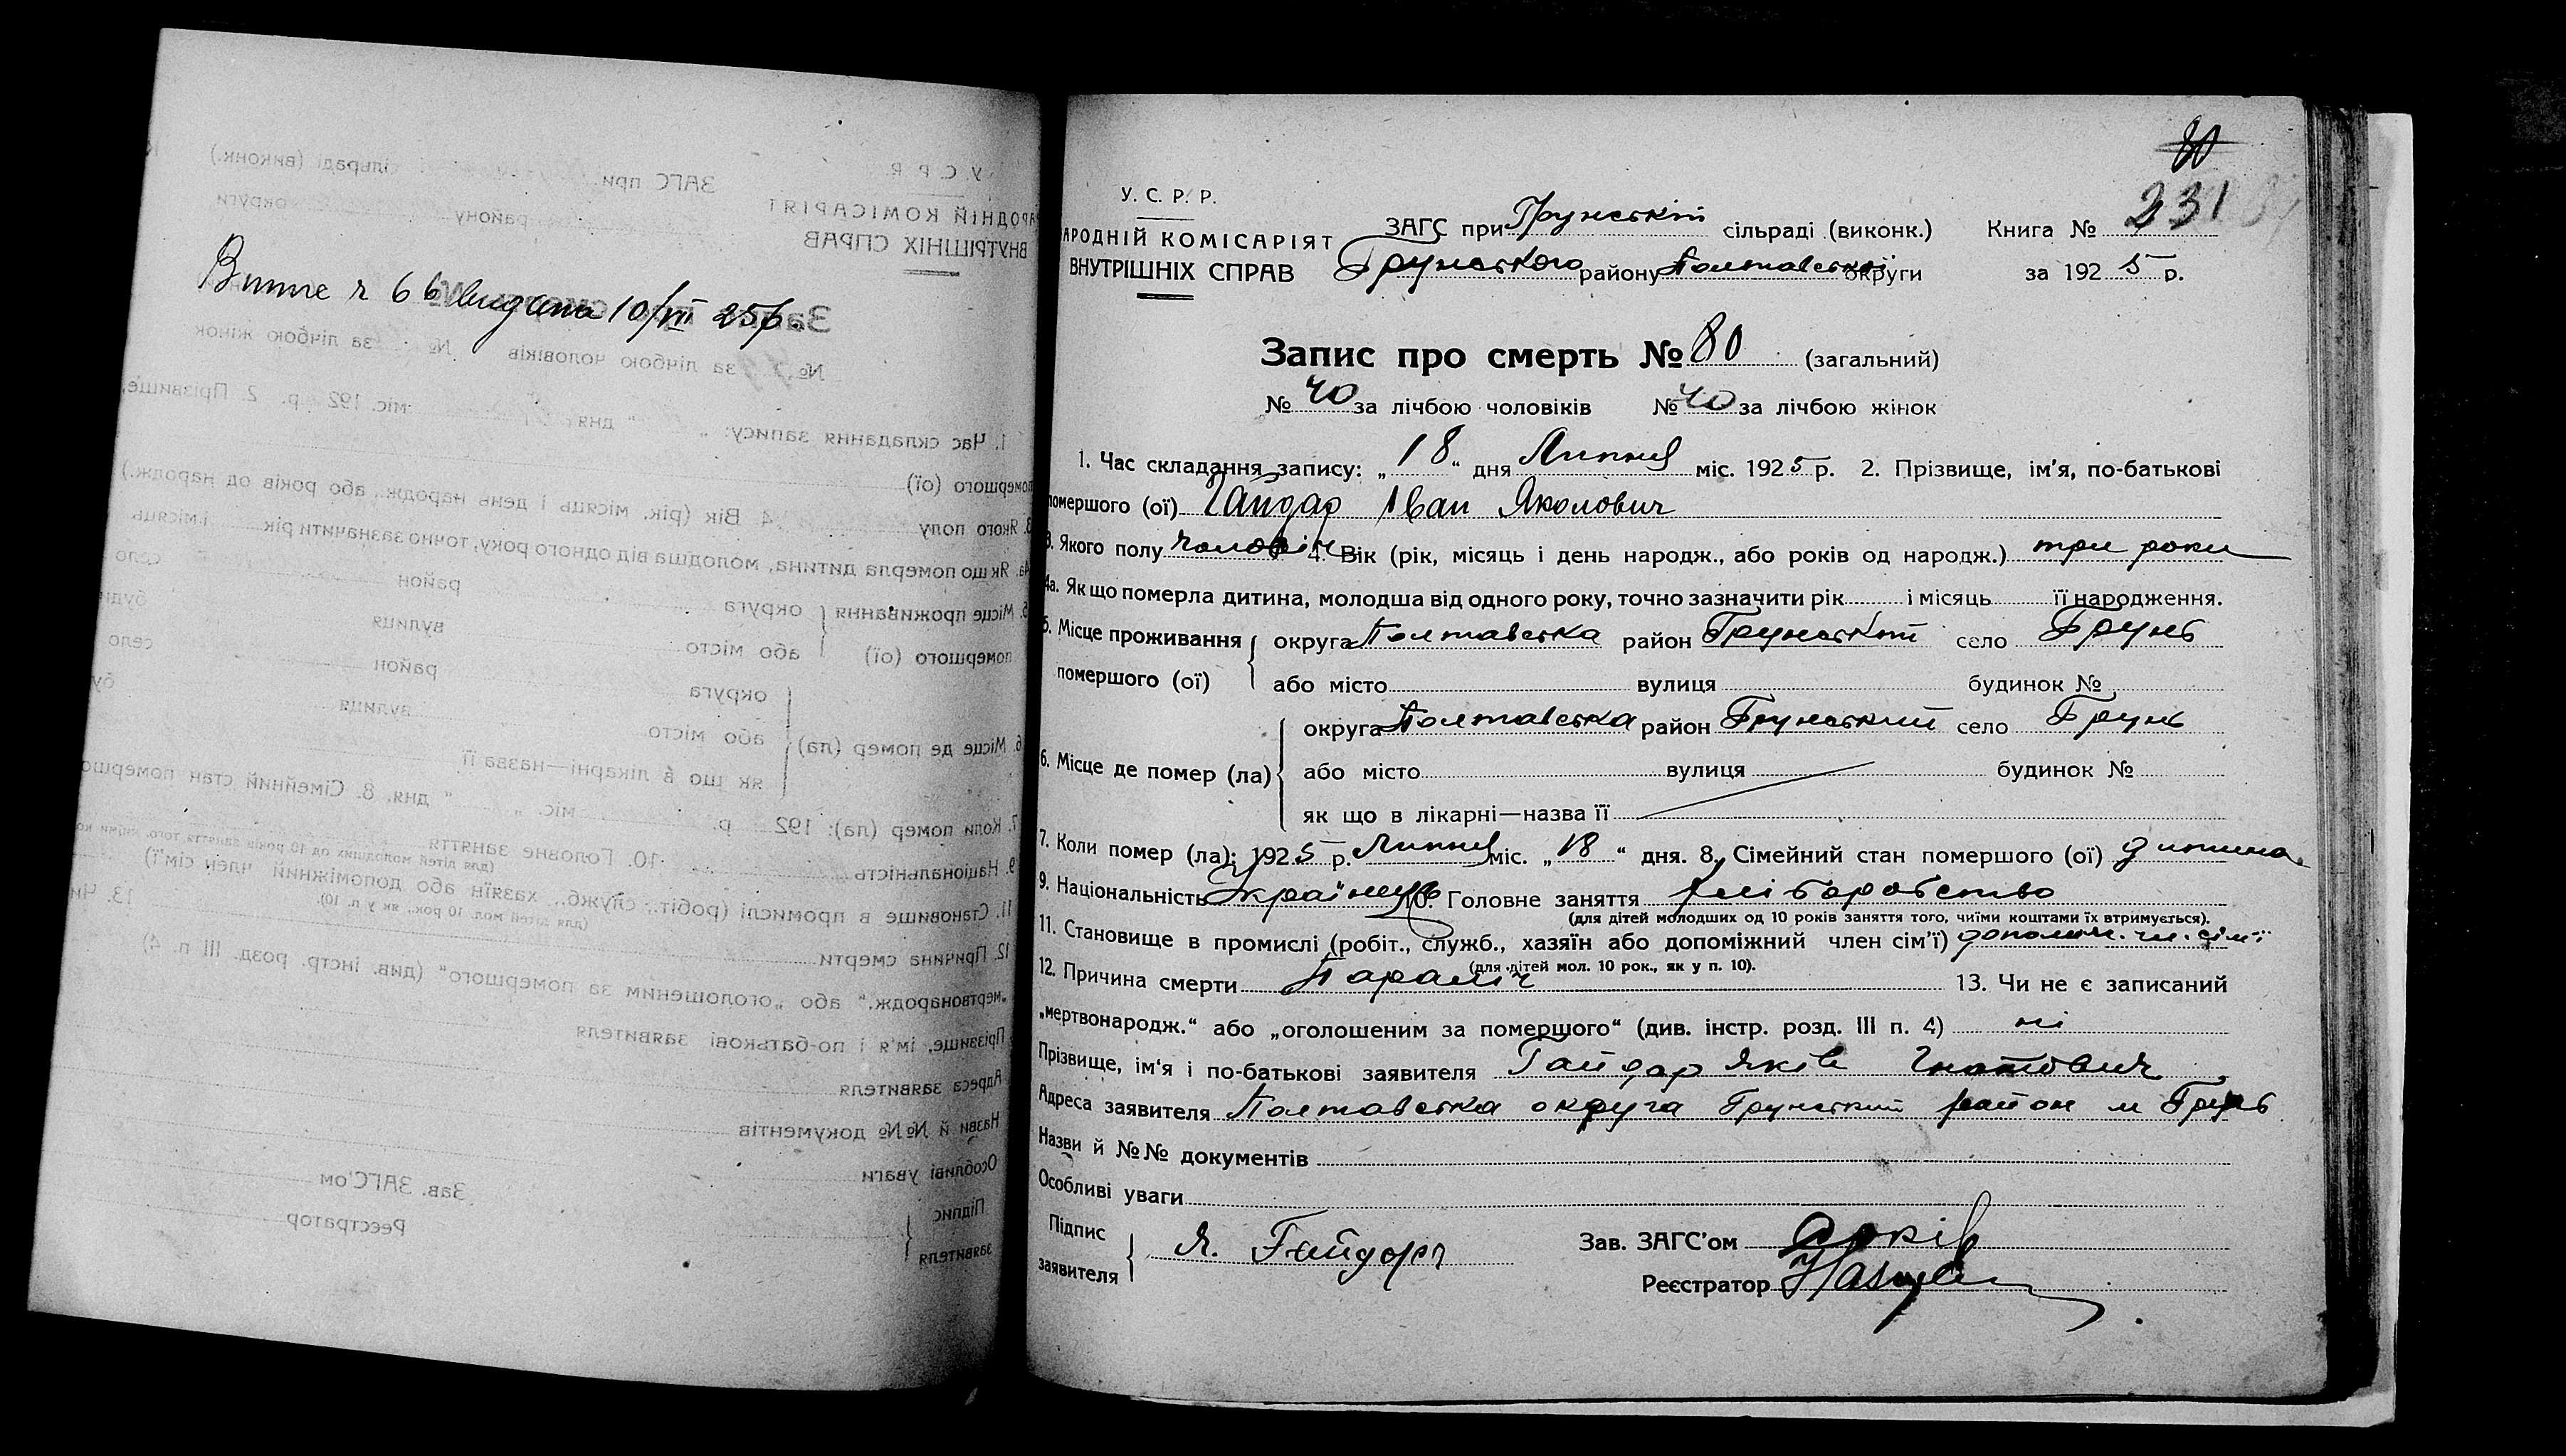 Випис № 66 видана 10/VII 25р.
80
231
У. С. Р. Р.
НАРОДНІЙ КОМІСАРІЯТ
ВНУТРІШНІХ СПРАВ
ЗАГС при Грунській сільраді (виконк.) Книга №
Грунського району Полтавської округи за 1925 р.
Запис про смерть № 80 (загальний)
№ 40 за лічбою чоловіків № 40 за лічбою жінок
1. Час складання запису: „18“ дня Липня міс. 1925 р. 2. Прізвище, ім'я, по-батькові
помершого (ої) Гайдар Іван Яковович
3. Якого полу чоловіч 4. Вік (рік, місяць і день народж., або років од народж.) три роки
4а. Як що померла дитина, молодша від одного року, точно зазначити рік і місяць її народження.
5. Місце проживання округа Полтавська район Грунський село Грунь
помершого (ої) або місто вулиця будинок №
округа Полтавська район Грунський село Грунь
6. Місце де помер (ла) або місто вулиця будинок №
як що в лікарні—назва її
7. Коли помер (ла): 1925 р. Липня міс. „18“ дня. 8. Сімейний стан помершого (ої) дитина
9. Національність Українець 10. Головне заняття хліборобство
(для дітей молодших од 10 років заняття того, чиїми коштами їх втримується).
11. Становище в промислі (робіт., служб., хазяїн або допоміжний член сім'ї) допоміж. чл. сім'ї
(для дітей мол. 10 рок., як у п. 10).
12. Причина смерти Параліч 13. Чи не є записаний
„мертвонародж.“ або „оголошеним за помершого“ (див. інстр. розд. III п. 4) ні
Прізвище, ім'я і по-батькові заявителя Гайдар Яків Гнатович
Адреса заявителя Полтавська округа Грунський район м Грунь
Назви й №№ документів
Особливі уваги
Підпис
заявителя Я. Гайдарь
Зав. ЗАГС'ом
Реєстратор